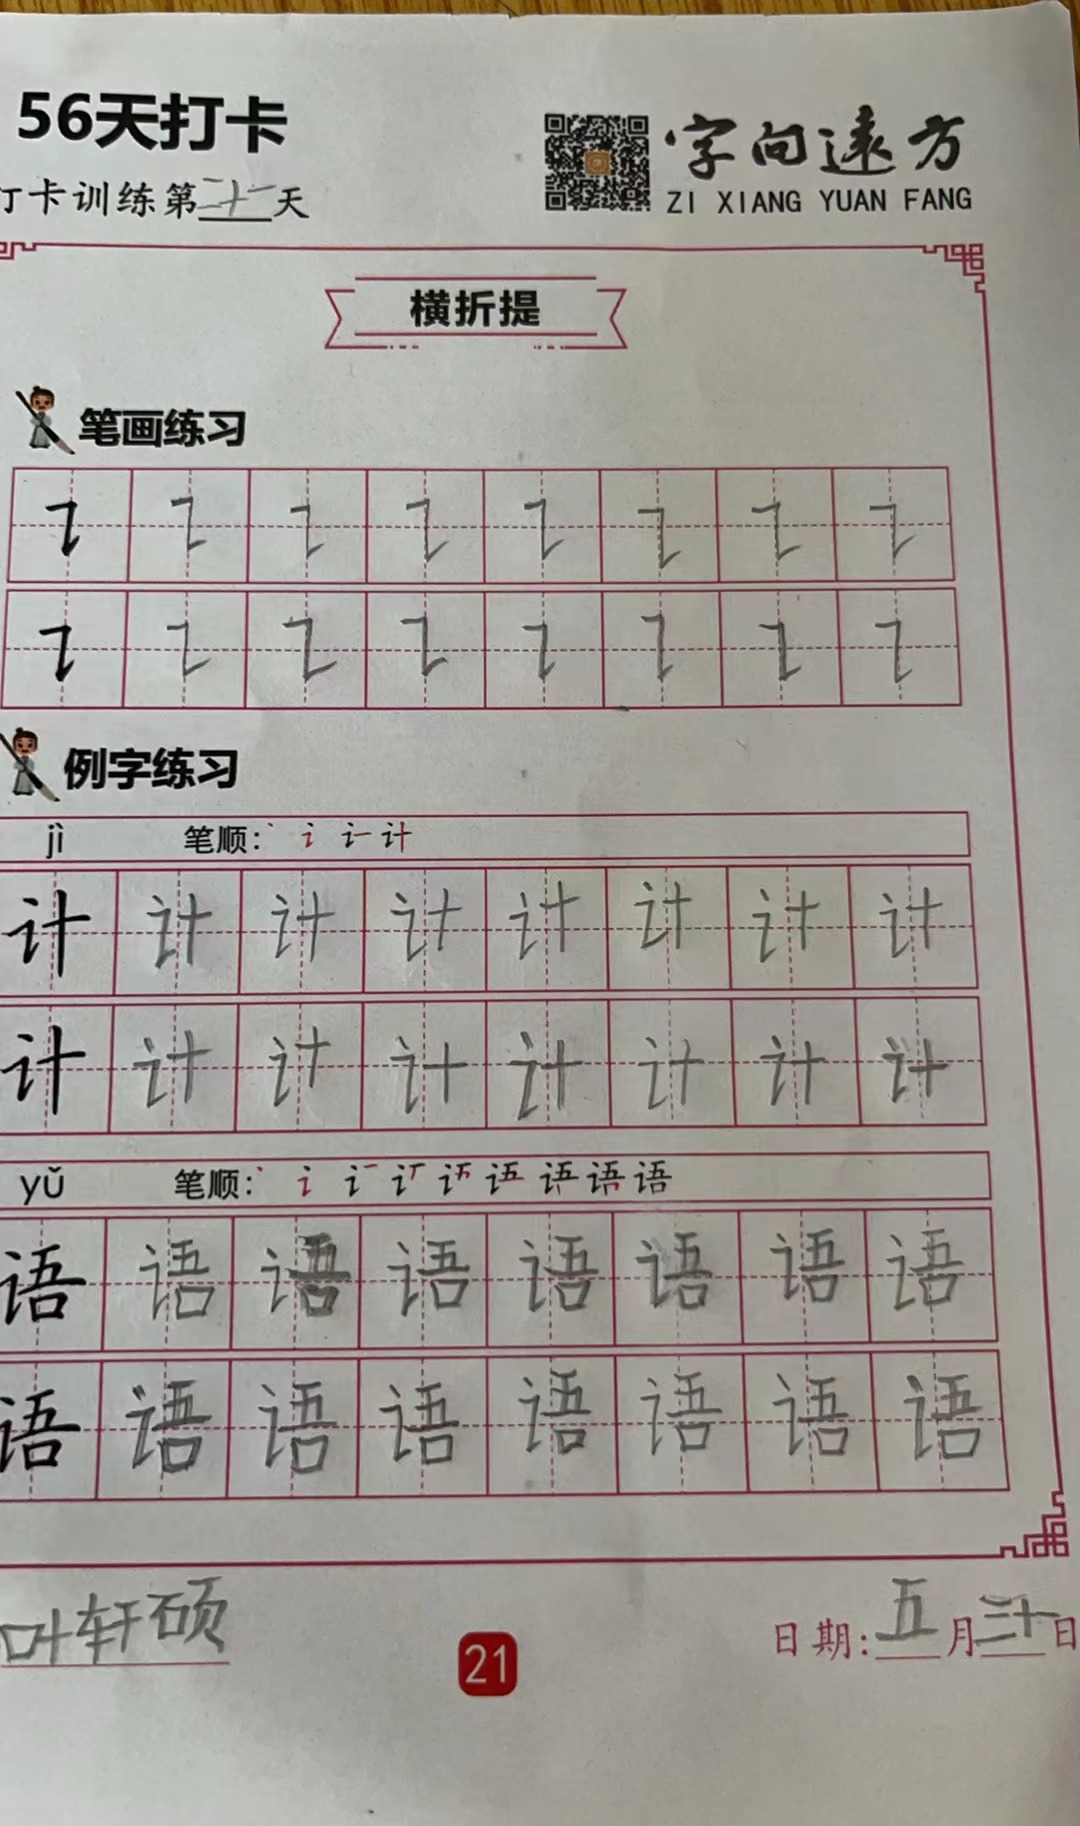 56天打卡
字向遠方
打卡训练第二十一天
ZI XIANG YUAN FANG
横折提
笔画练习
例字练习
jì 笔顺: 丶 讠 计
计 计 计 计 计 计 计 计
计 计 计 计 计 计 计 计
yǔ 笔顺: 丶 讠 语
语 语 语 语 语 语 语 语
语 语 语 语 语 语 语 语
叶轩硕
21
日期:五月三十日